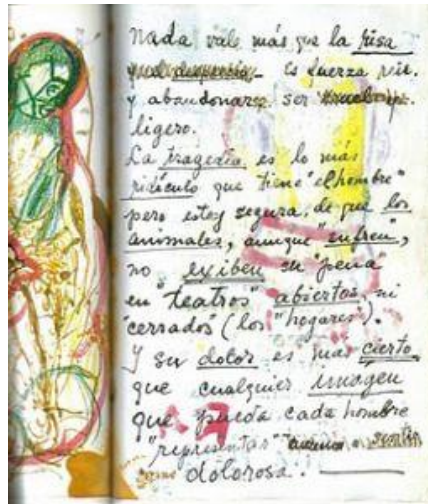 Nada vale más que la risa
es fuerza reir.
y abandonarse. ser
ligero.
La tragedia es lo más
ridículo que tiene "el hombre"
pero estoy segura, de que los
animales, aunque "sufren",
no exiben su "pena"
en "teatros" abiertos, ni
"cerrados" (los "hogares").
Y su dolor es más cierto
que cualquier imágen
que pueda cada hombre
"representar" sentir
como dolorosa.